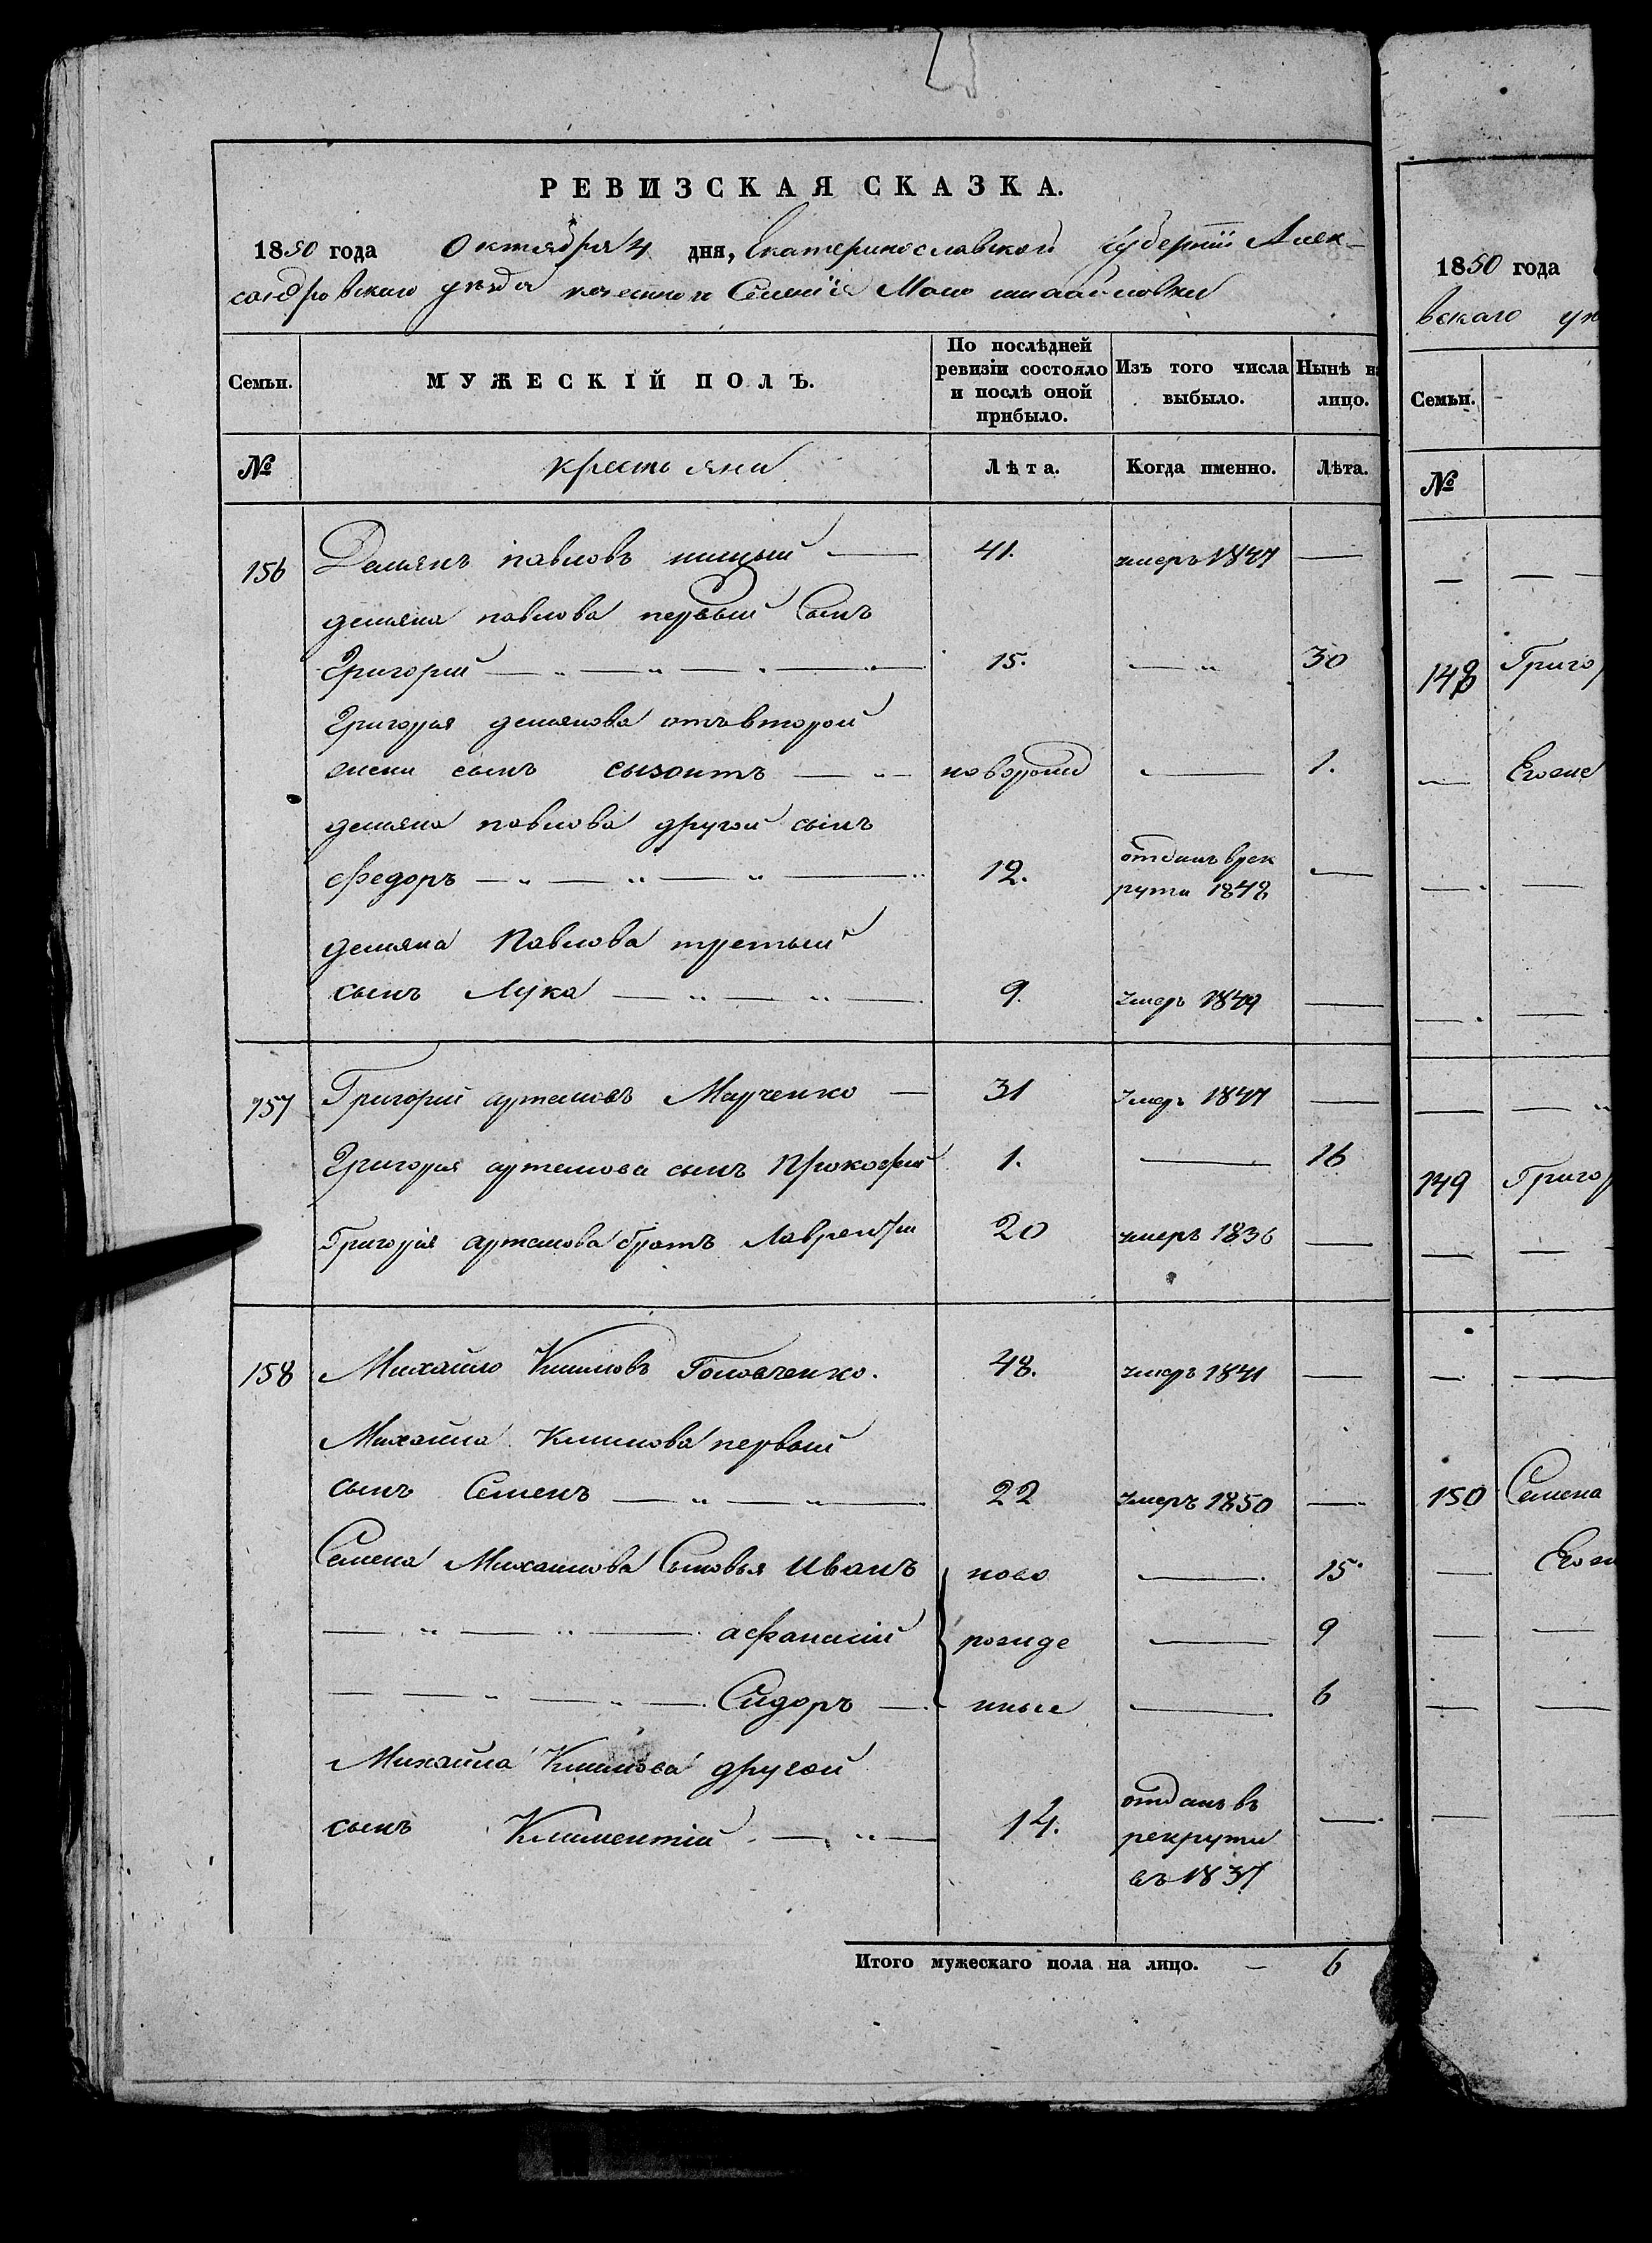 РЕВИЗСКАЯ СКАЗКА.
1850 года Октября 4 дня, Екатеринославской губерніи Алек-
сандровского уѣзда казеннаго Селенія Мало михайловки
Семьи. МУЖЕСКІЙ ПОЛЪ. По послѣдней ревизіи состояло и послѣ оной прибыло. Изъ того числа выбыло. Нынѣ на лицо.
№ крестьяни Лѣта. Когда именно. Лѣта.
156 Демянъ павловъ 41. умеръ 1847 —
демяна павлова первый Сынъ
Григорий 15. — 30
Григорія демянова отъ второй
жени сынъ новорожд — 1.
демяна павлова другой сынъ
федоръ 12. отданъ врек рути 1848 —
демяна Павлова третьий
сынъ Лука 9. умеръ 1849 —
157 Григорий артемовъ Марченко — 31 умеръ 1847 —
Григорія артемова сынъ Прокофий 1. — 16
Григорія артемова братъ Лаврентии 20 умеръ 1836 —
158 Михайло Климовъ Головченко. 48. умеръ 1841 —
Михайла Климова первый
сынъ Семенъ 22 умеръ 1850 —
Семена Михайлова Сыновья Иванъ ново — 15.
афанасий рожде — 9
Сидоръ — нные — 6
Михайла Климова другой
сынъ Климентій 14. отданъ въ рекрути въ 1837 —
Итого мужескаго пола на лицо. — 6
1850 года
вскаго уѣ
Семьи.
№
148 Григо
Его же
149 Григо
150 Семена
Его ж